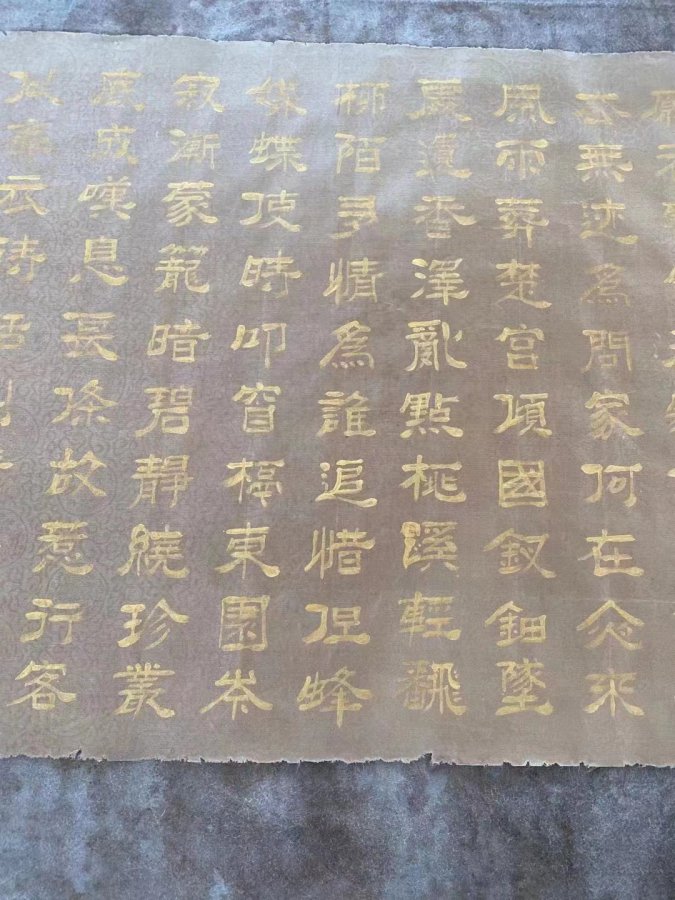 去無迹為問家何在夜來
風雨葬楚宮頃國釵鈿墜
處遺香澤亂點桃蹊輕飜
柳陌多情為誰追惜但蜂
媒蝶使時叩窗槅東園岑
寂漸蒙籠暗碧靜繞珍叢
底成嘆息長條故惹行客
似牽衣待話